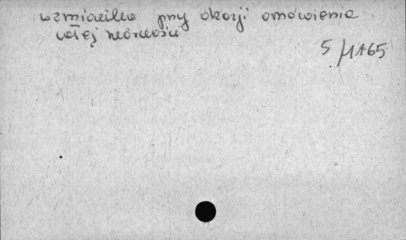 wzmianka przy okazji omówienia
całej
5/1165